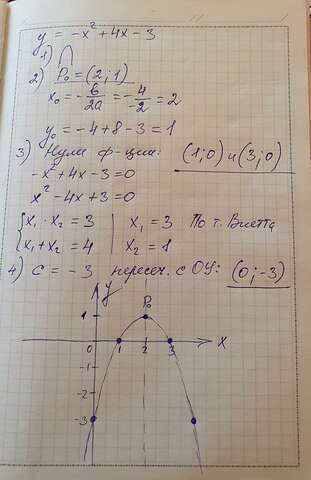 y = -x² + 4x - 3
1) ∩
2) P₀ = (2; 1)
x₀ = -b/2a = -4/-2 = 2
y₀ = -4 + 8 - 3 = 1
3) Нули ф-ции: (1; 0) и (3; 0)
-x² + 4x - 3 = 0
x² - 4x + 3 = 0
{ x₁ · x₂ = 3 | x₁ = 3 По т. Виетта
{ x₁ + x₂ = 4 | x₂ = 1
4) C = -3 пересеч. с OY: (0; -3)
y
P₀
1
0 1 2 3 X
-1
-2
-3